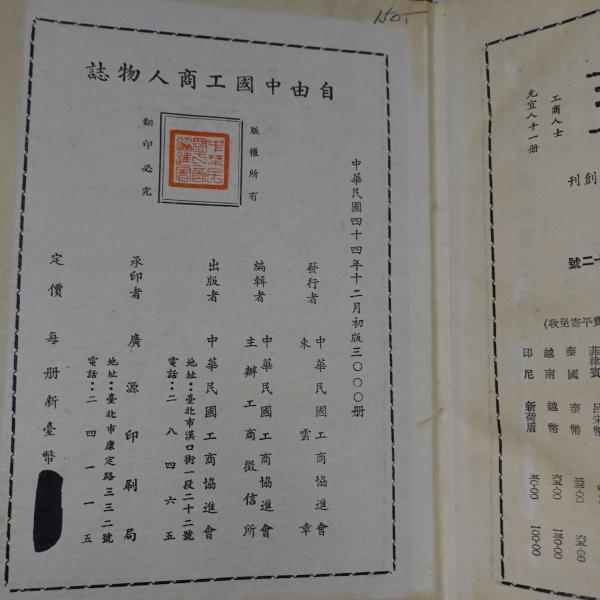 No.
自由中國工商人物誌
版權所有
翻印必究
中華民國四十四年十二月初版三〇〇〇册
發行者 中華民國工商協進會
束雲章
編輯者 中華民國工商協進會
主辦工商徵信所
出版者 中華民國工商協進會
地址：臺北市漢口街一段二十二號
電話：二八四六五
承印者 廣源印刷局
地址：臺北市康定路三三二號
電話：二四一一五
定價每册新臺幣
工商人士
允宜人手一册
創刊
二號
菲律賓 呂宋幣
泰國 泰幣
越南 越幣
印尼 新荷盾 50.00 100.00